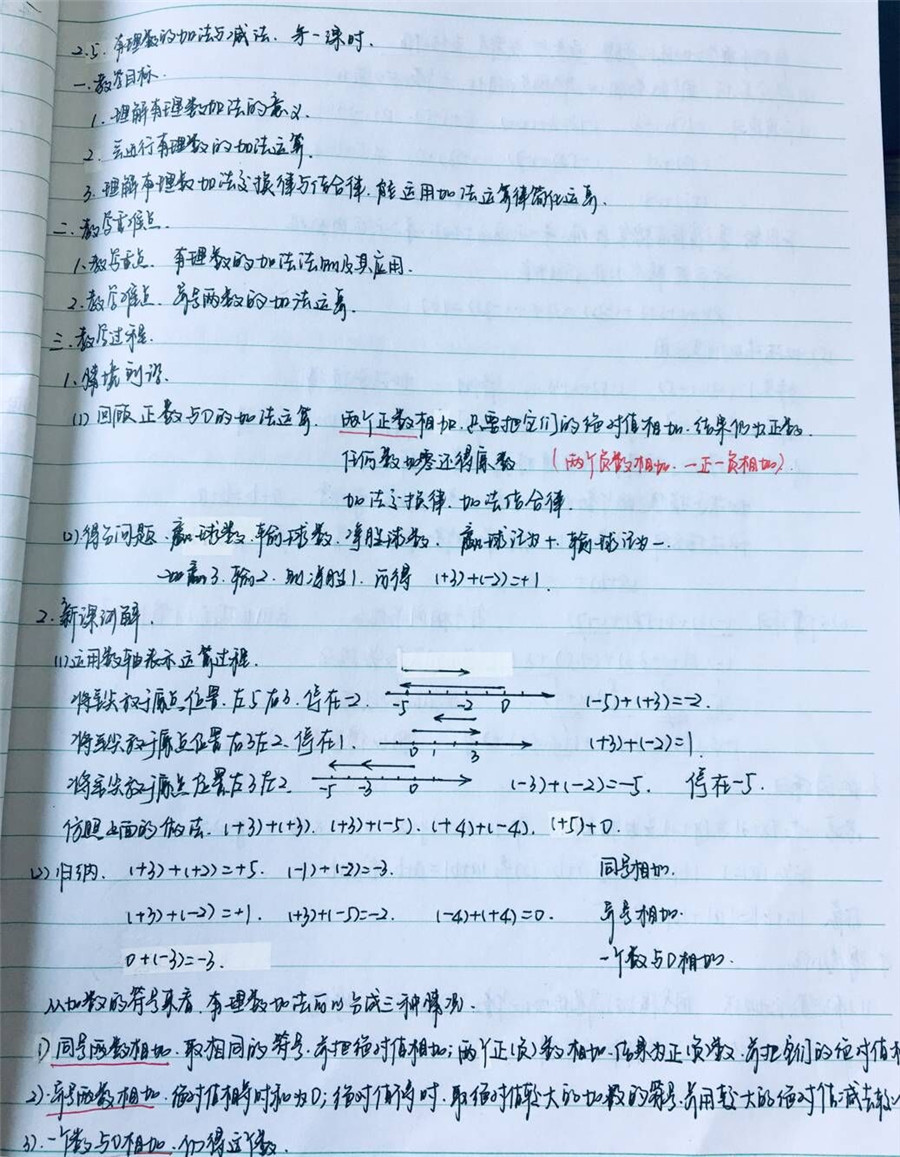 2.5. 有理数的加法与减法. 第一课时.
一. 教学目标.
1. 理解有理数加法的意义.
2. 会进行有理数的加法运算.
3. 理解有理数加法交换律与结合律. 能运用加法运算律简化运算.
二. 教学重难点.
1. 教学重点. 有理数的加法法则及其应用.
2. 教学难点. 异号两数的加法运算.
三. 教学过程.
1. 情境创设.
(1) 回顾正数与0的加法运算. 两个正数相加. 只要把它们的绝对值相加. 结果仍为正数.
任何数加零还得原数 (两个负数相加. 一正一负相加).
加法交换律. 加法结合律.
(2) 得分问题. 赢球数. 输球数. 净胜球数. 赢球记为+. 输球记为-.
如赢3. 输2. 则净胜1. 可得 (+3)+(-2)=+1.
2. 新课讲解.
(1) 运用数轴表示运算过程.
将笔尖放于原点位置. 左5右3. 停在-2. -5 -2 0 (-5)+(+3)=-2.
将笔尖放于原点位置右3左2. 停在1. 0 1 3 (+3)+(-2)=1
将笔尖放于原点位置左3左2. -5 -3 0 (-3)+(-2)=-5. 停在-5.
仿照上面的做法. (+3)+(+3). (+3)+(-5). (+4)+(-4). (+5)+0.
(2) 归纳. (+3)+(+2)=+5. (-1)+(-2)=-3. 同号相加.
(+3)+(-2)=+1. (+3)+(-5)=-2. (-4)+(+4)=0. 异号相加.
0+(-3)=-3. 一个数与0相加.
从加数的符号来看. 有理数加法可以分成三种情况.
1) 同号两数相加. 取相同的符号. 并把绝对值相加; 两个正(负)数相加. 结果为正(负)数. 并把它们的绝对值相
2). 异号两数相加. 绝对值相等时和为0; 绝对值不等时. 取绝对值较大的加数的符号. 并用较大的绝对值减去较小
3). 一个数与0相加. 仍得这个数.